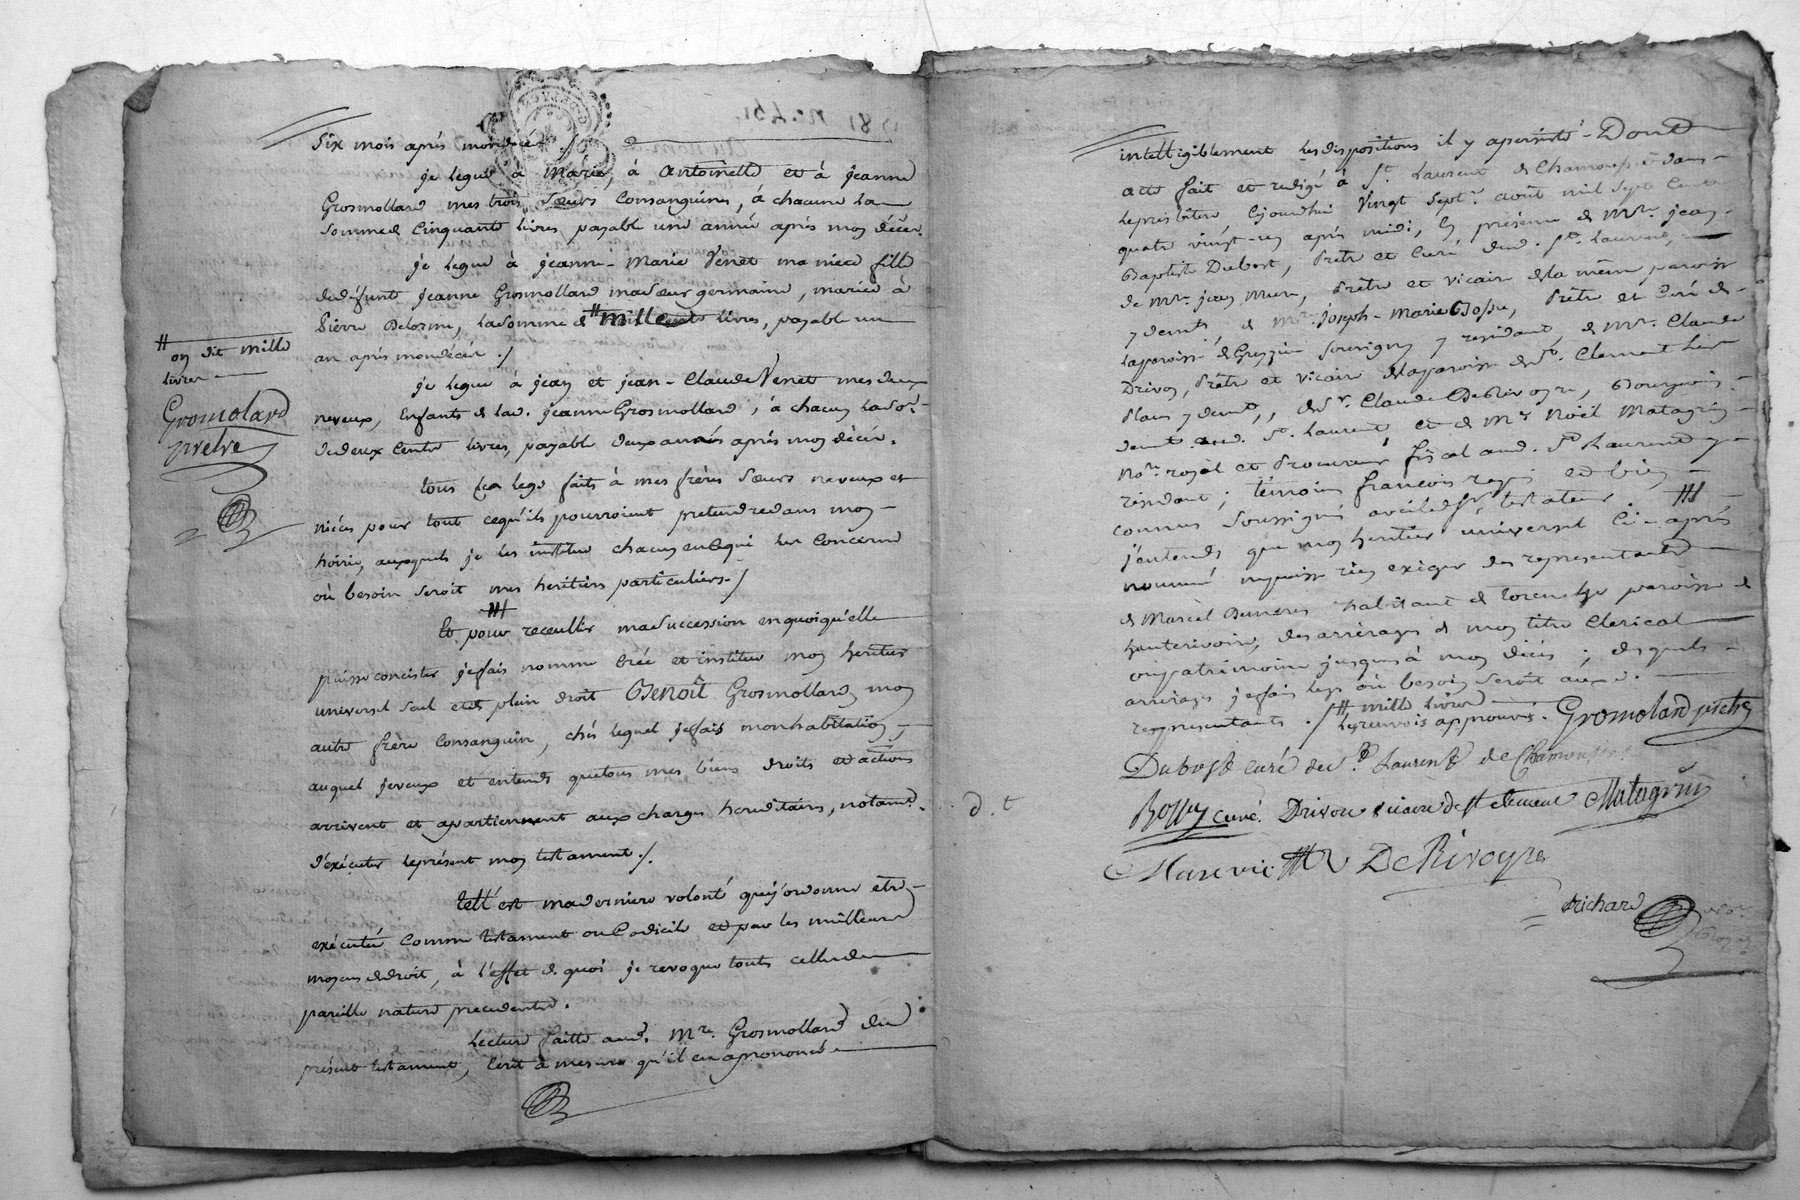 Six mois après mon décès ./.
je legue à Marie, à Antoinette et à jeanne
Grosmollard mes trois soeurs Consanguines, à chacune la
somme de Cinquante livres, payable une année après mon décès.
je legue à jeanne-Marie Venet ma niece fille
de defunt jeanne Grosmollard ma soeur germaine, mariée à
Pierre Delorme, la somme de # mille livres, payable un
an après mon décès ./
je legue à jean et jean-Claude Venet mes deux
neveux, Enfants de lad. jeanne Grosmollard, à chacun la so.e
de deux Cents livres, payable deux années après mon décès.
tous les legs faits à mes frères soeurs neveux et
nièces pour tout ce qu'ils pourroient pretendre dans mon
hoirie, auxquels je les institue chacun en ce qui les Concerne
où besoin seroit mes heritiers particuliers ./
Et pour receullir ma succession en quoi qu'elle
puisse concister je fais nomme Crée et institue mon heritier
universel seul et de plein droit Benoît Grosmollard mon
autre frère Consanguin, chés lequel je fais mon habitation,
auquel je veux et entends que tous mes biens droits et actions
arrivent et apartiennent aux charges hereditaires, notamt.
d'exécuter le présent mon testament ./.
Tell'est ma derniere volonté que j'ordonne etre
exécutée Comme testament ou Codicile et par les meilleurs
moyens de droit, à l'effet de quoi je revoque toutes celles de
pareille nature precedentes.
Lecture faitte aud. Mre. Grosmollard du
présent testament, Ecrit à mesure qu'il en a prononcé
# on dit mille
livres
Gromolard
pretre
intelligiblement les dispositions il y a persisté - Dont
acte fait et redigé à St. Laurent de Chamousset dans
le presbitere Cejourdhui Vingt Sept. août mil Sept Cent
quatre vingt-un après midi, En présence de Mre. jean
Baptiste Dubost, Prêtre et Curé dud. St. Laurent,
de Mre. jean Mure, Prêtre et vicaire de la même paroisse
y demt., de Mre. joseph-Marie Bossu, Prêtre et Curé de
la paroisse de Grezieu Souvigny y residant, de Mre. Claude
Drivon, Prêtre et Vicaire de la paroisse de St. Clement les
Places y demt., de Sr. Claude DeRivoyre, Bourgeois
demt. aud. St. Laurent et de Me. Noël Matagrin
No.re royal et Procureur fiscal aud. St. Laurent y
résidant; témoins francois regni et bien
connus Soussignés avec led. Sr. testateur.
j'entends que mon heritier universel Ci-après
nommé ne puisse rien exiger des representants
de Marcel habitant de paroisse de
hauterivoire, des arrérages de mon titre Clerical
ou patrimoine jusques à mon décès; desquels
arrérages je fais legs où besoin seroit auxd.
representants ./ # mille livres
les renvois approuvés. Gromolard pretre
Dubost curé de St. Laurent de Chamousset
Bossu curé. Drivon vicaire de st clement Matagrin
Mure vic. DeRivoyre
d. t
Richard